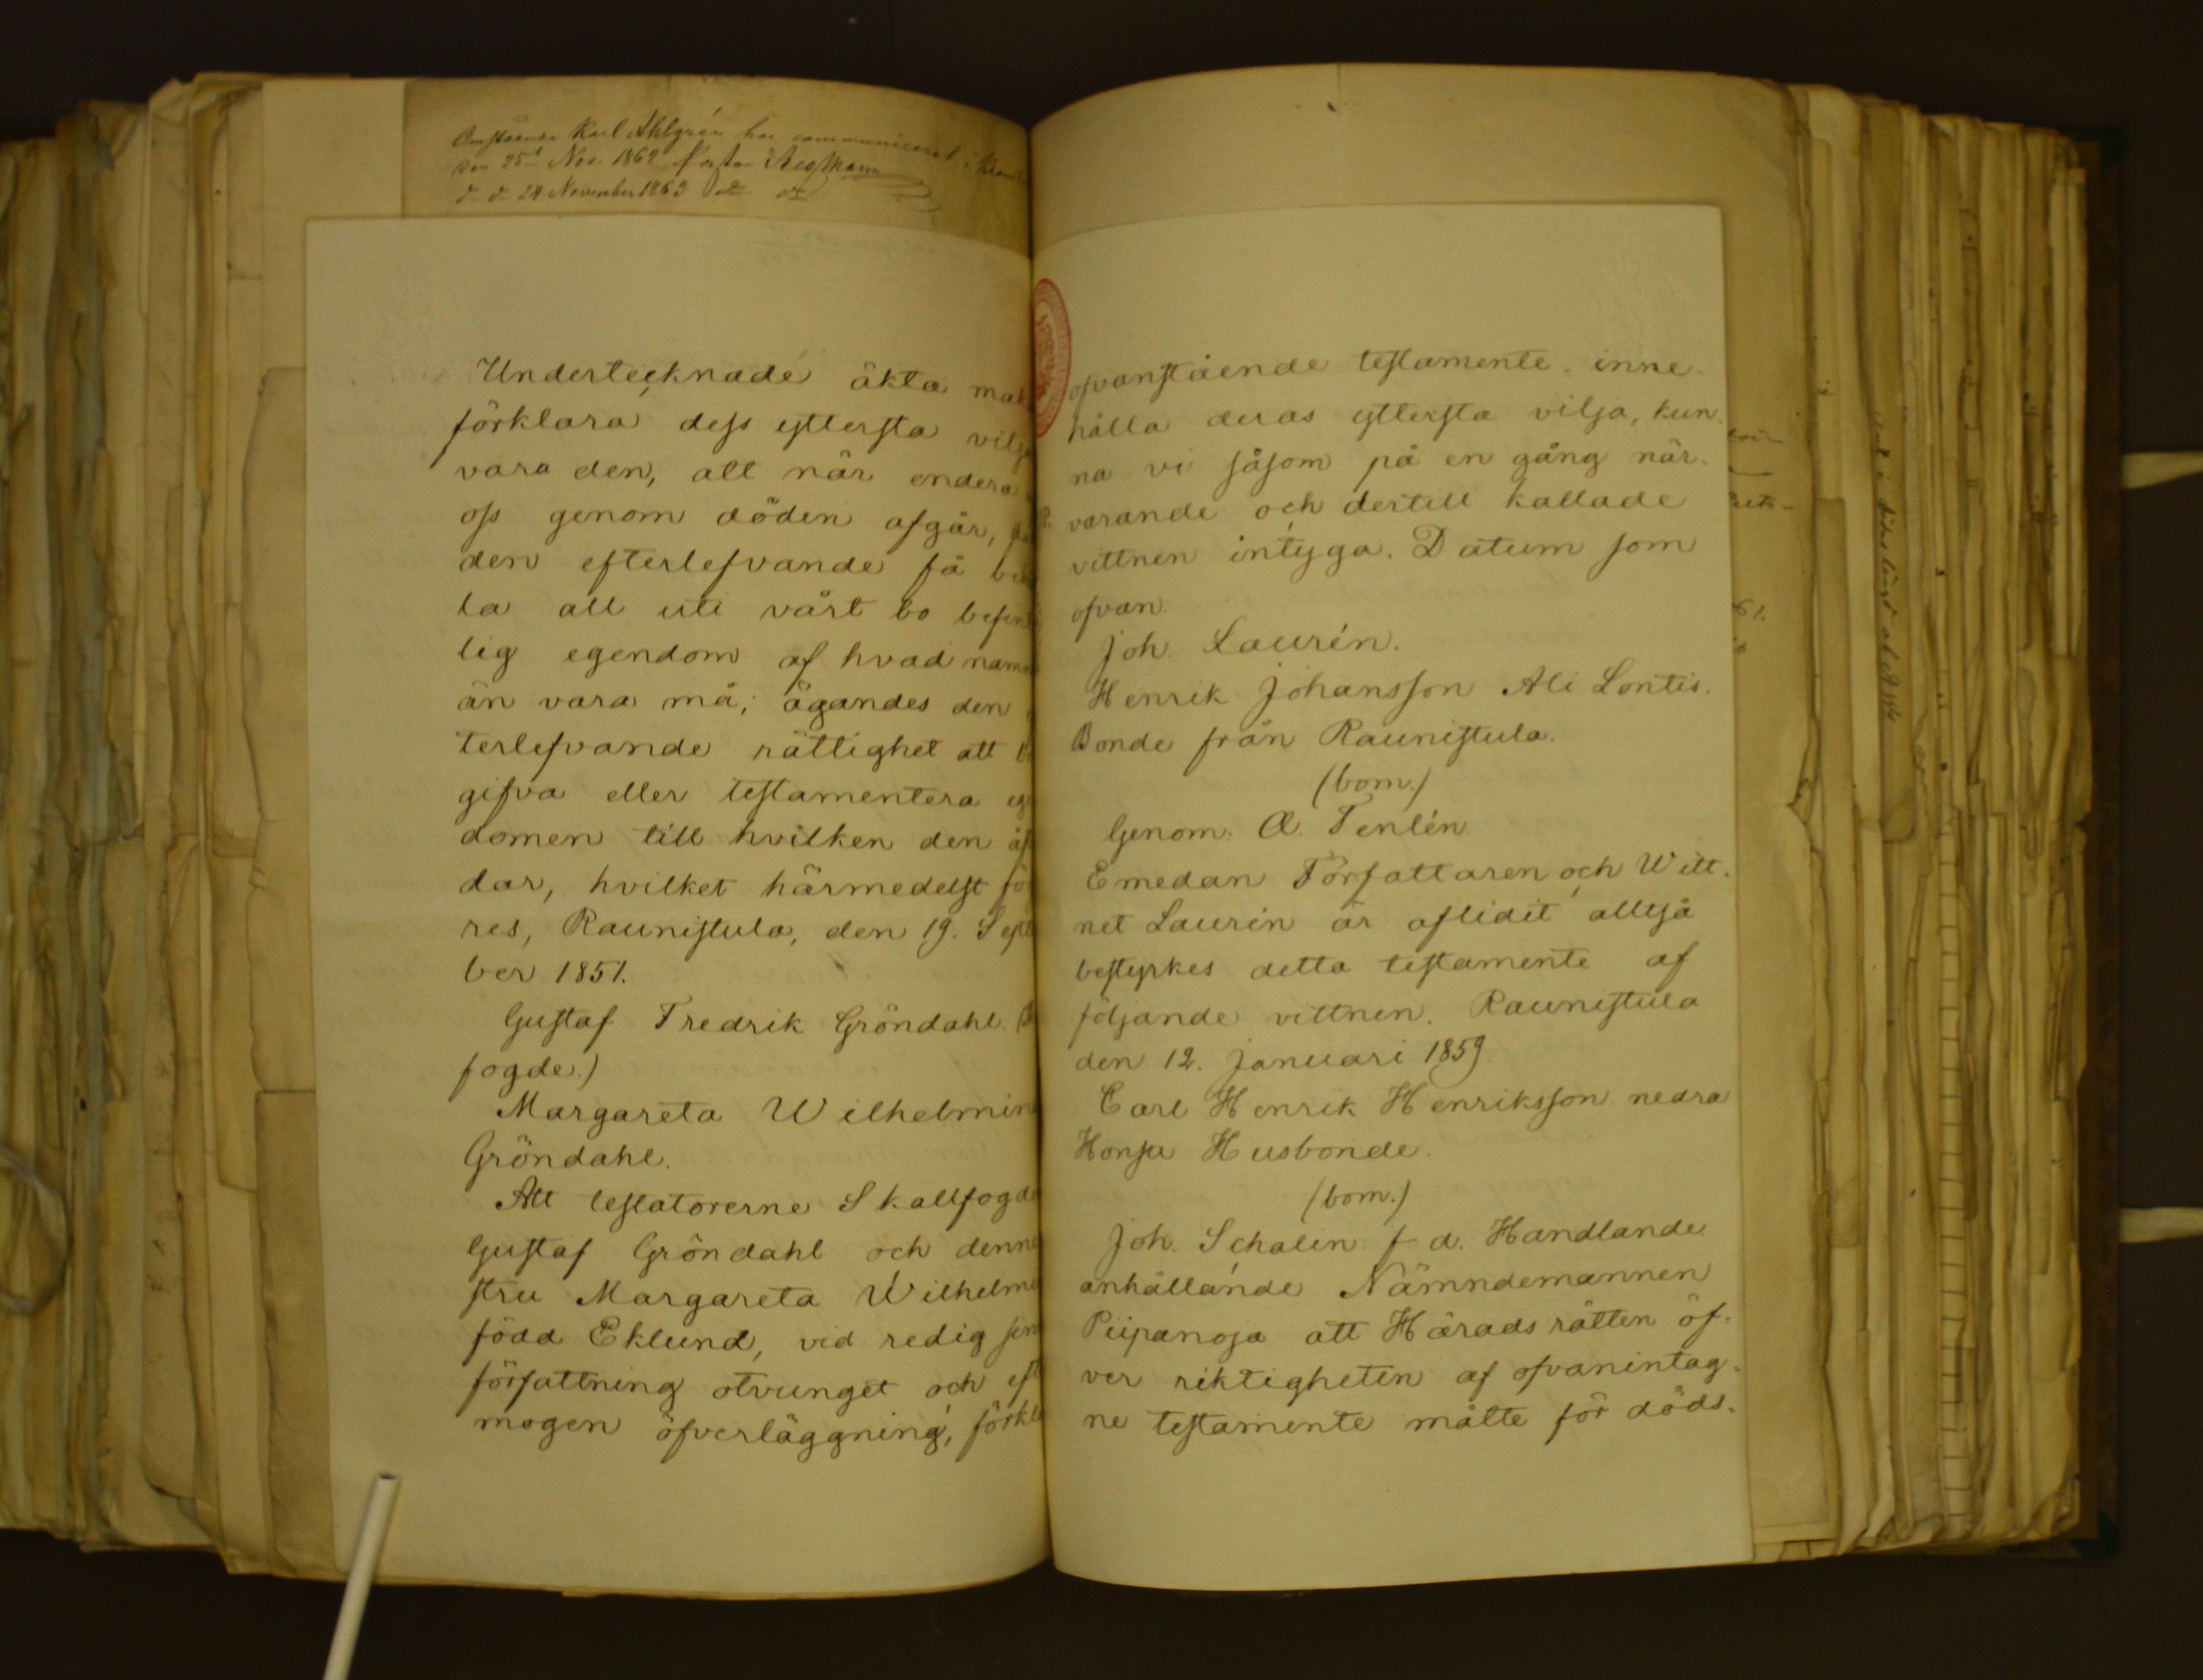 Omstående Karl Ahlgrén har communicerat i
den 25t Nov. 1862
d d 24 November 1863
Undertecknade äkta mak
förklara dess yttersta vilja
vara den, att när endera
oss genom döden afgår,
den efterlefvande få be
la all uti vårt bo befint
lig egendom af hvad namn
än vara må; ägandes den
terlefvande rättighet att b
gifva eller testamentera eg
domen till hvilken den ås
dar, hvilket härmedelst fö
res, Raunistula, den 19. Sept
ber 1851.
Gustaf Fredrik Gröndahl. (S
fogde.)
Margareta Wilhelmin
Gröndahl.
Att testatorerne Skallfogde
Gustaf Gröndahl och denne
stru Margareta Wilhelmi
född Eklund, vid redig sin
författning otvunget och eft
mogen öfverläggning, förkla
ofvanstående testamente inne-
hålla deras yttersta vilja, kun-
na vi såsom på en gång när-
varande och dertill kallade
vittnen intyga. Datum som
ofvan.
Joh. Laurén.
Henrik Johansson Ali Lontis.
Bonde från Raunistula.
(bom.)
Genom: A. Tenlén.
Emedan Författaren och Witt-
net Laurén är aflidit alltså
bestyrkes detta testamente af
följande vittnen. Raunistula
den 12. januari 1859
Carl Henrik Henriksson nedra
Honsa Husbonde.
(bom.)
Joh. Schalin f d. Handlande
anhållande Nämndemannen
Piipanoja att Häradsrätten öf-
ver riktigheten af ofvanintag-
ne testamente måtte för döds-
61.